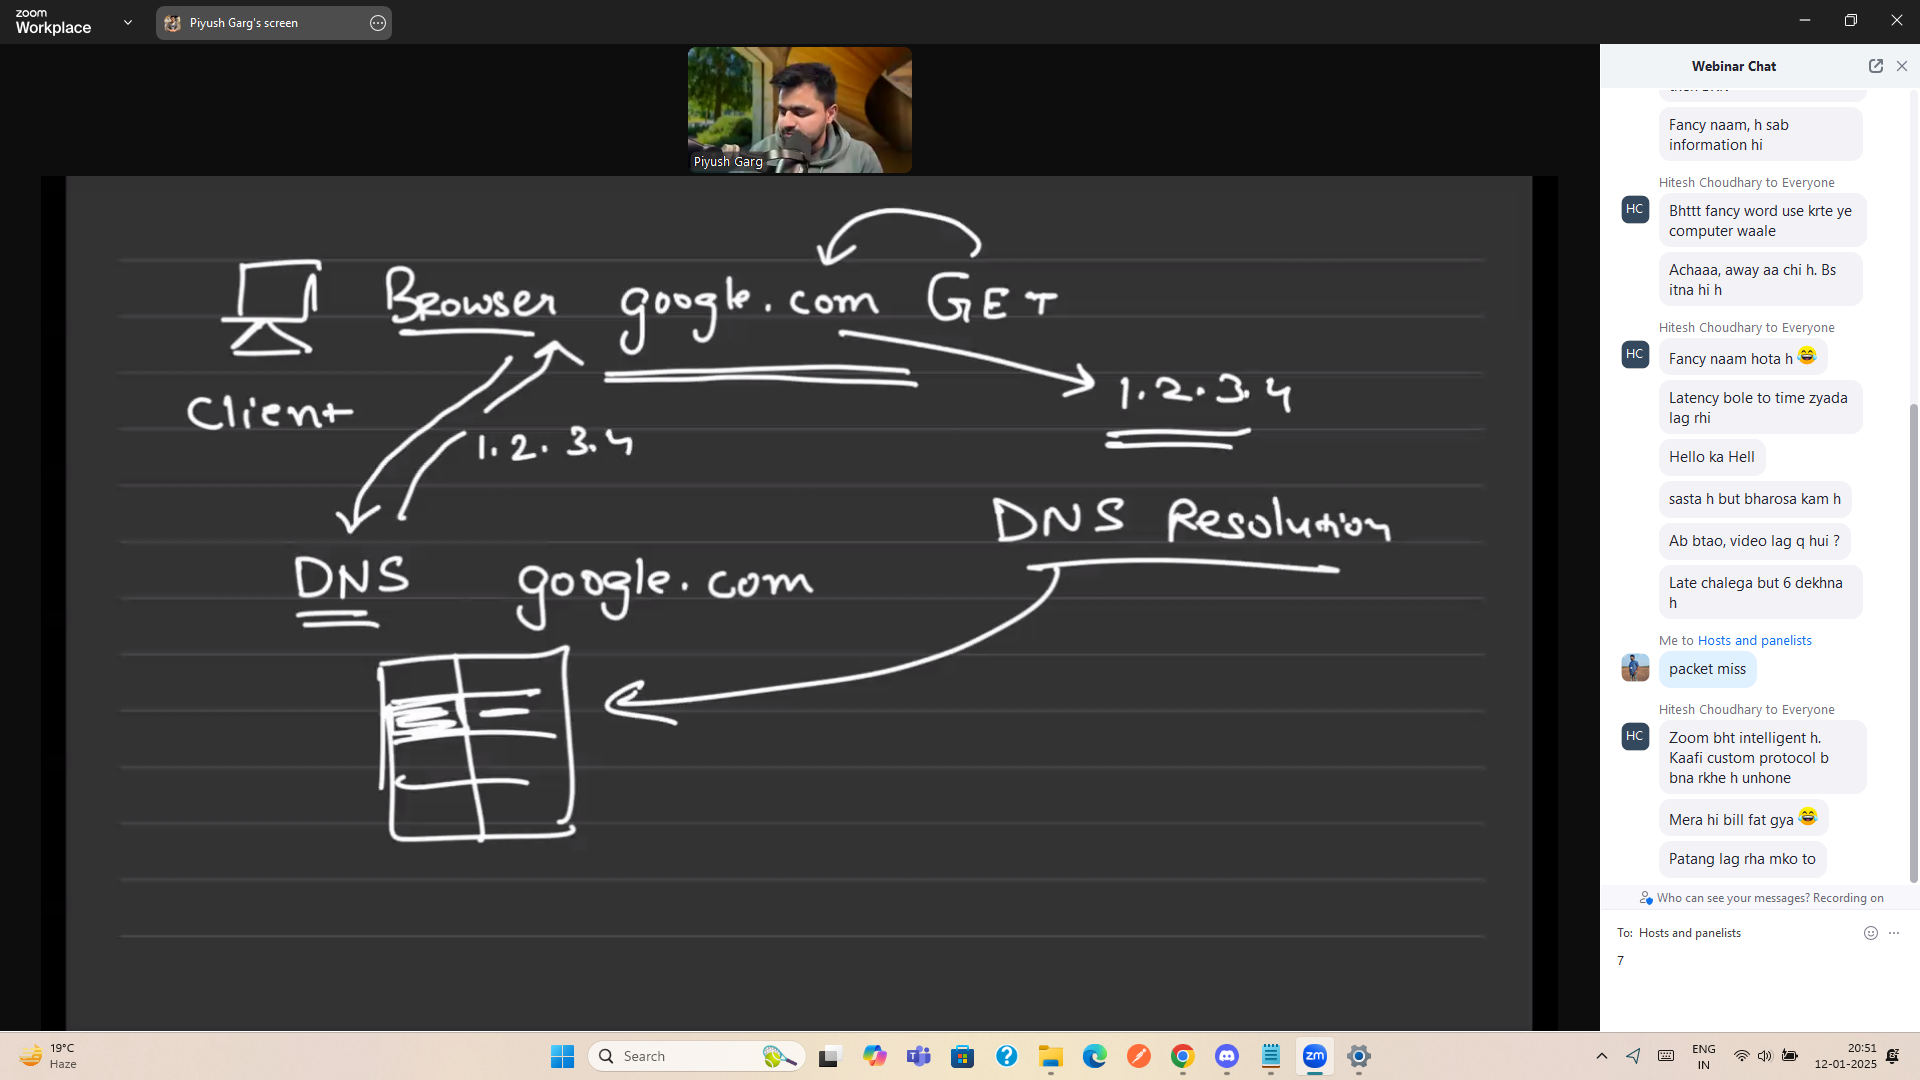 zoom
Workplace
Piyush Garg's screen
Piyush Garg
Browser google.com GET
1.2.3.4
Client
1.2.3.4
DNS Resolution
DNS google.com
Webinar Chat
Fancy naam, h sab
information hi
Hitesh Choudhary to Everyone
HC
Bhttt fancy word use krte ye
computer waale
Achaaa, away aa chi h. Bs
itna hi h
Hitesh Choudhary to Everyone
HC
Fancy naam hota h 😂
Latency bole to time zyada
lag rhi
Hello ka Hell
sasta h but bharosa kam h
Ab btao, video lag q hui ?
Late chalega but 6 dekhna
h
Me to Hosts and panelists
packet miss
Hitesh Choudhary to Everyone
HC
Zoom bht intelligent h.
Kaafi custom protocol b
bna rkhe h unhone
Mera hi bill fat gya 😂
Patang lag rha mko to
Who can see your messages? Recording on
To: Hosts and panelists
7
19°C
Haze
Search
zm
ENG
IN
20:51
12-01-2025